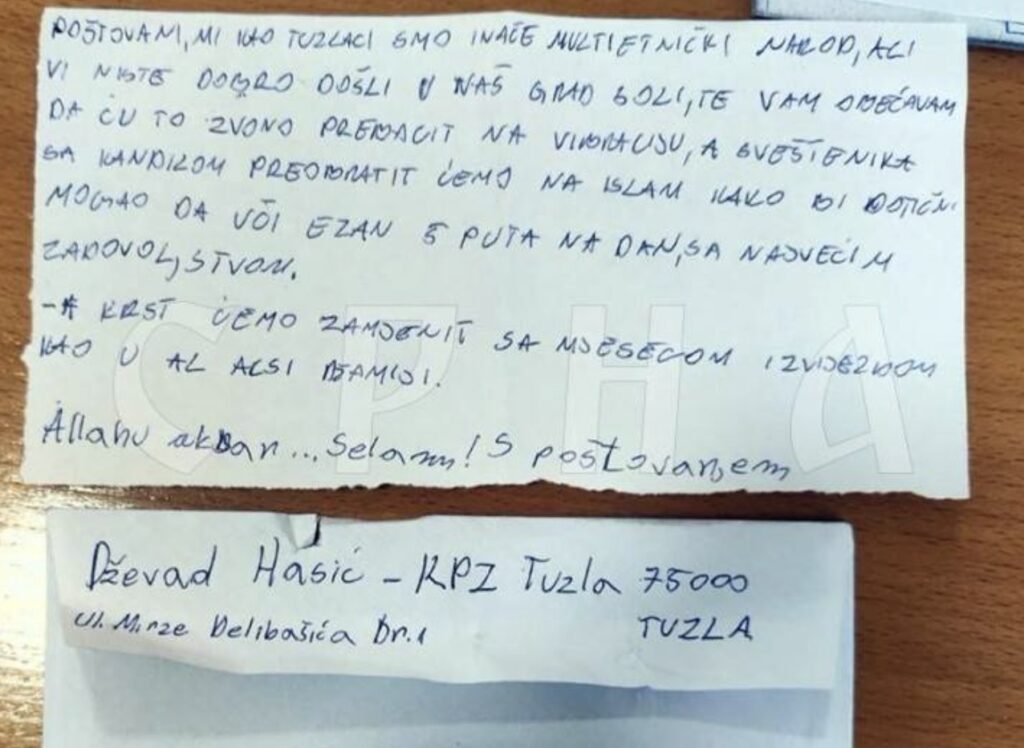 POŠTOVANI, MI KAO TUZLACI SMO INAČE MULTIETNIČKI NAROD, ALI
VI NISTE DOBRO DOŠLI U NAŠ GRAD SOLI, TE VAM OBEĆAVAM
DA ĆU TO ZVONO PREBACIT NA VIBRACIJU, A SVEŠTENIKA
SA KANDILOM PREOBRATIT ĆEMO NA ISLAM KAKO BI DOTIČNI
MOGAO DA UČI EZAN 5 PUTA NA DAN, SA NAJVEĆIM
ZADOVOLJSTVOM.
- A KRST ĆEMO ZAMJENIT SA MJESECOM I ZVIJEZDOM
KAO U AL ACSI DŽAMIJI.
Allahu akbar... Selam! S poštovanjem
СРНА
Dževad Hasić - KPZ Tuzla 75000
Ul. Mirze Delibašića Br. 1 TUZLA